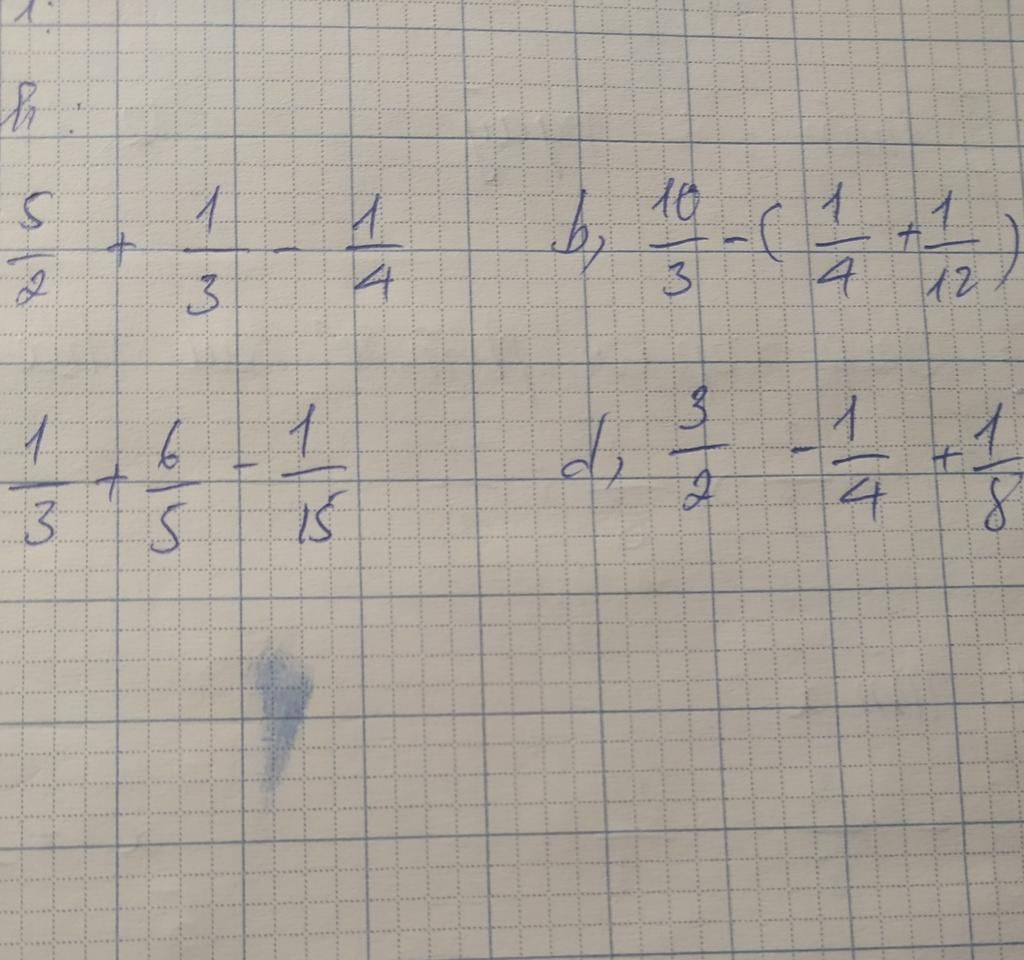 1.
h :
5/2 + 1/3 - 1/4 b, 10/3 - ( 1/4 + 1/12 )
1/3 + 6/5 - 1/15 d, 3/2 - 1/4 + 1/8